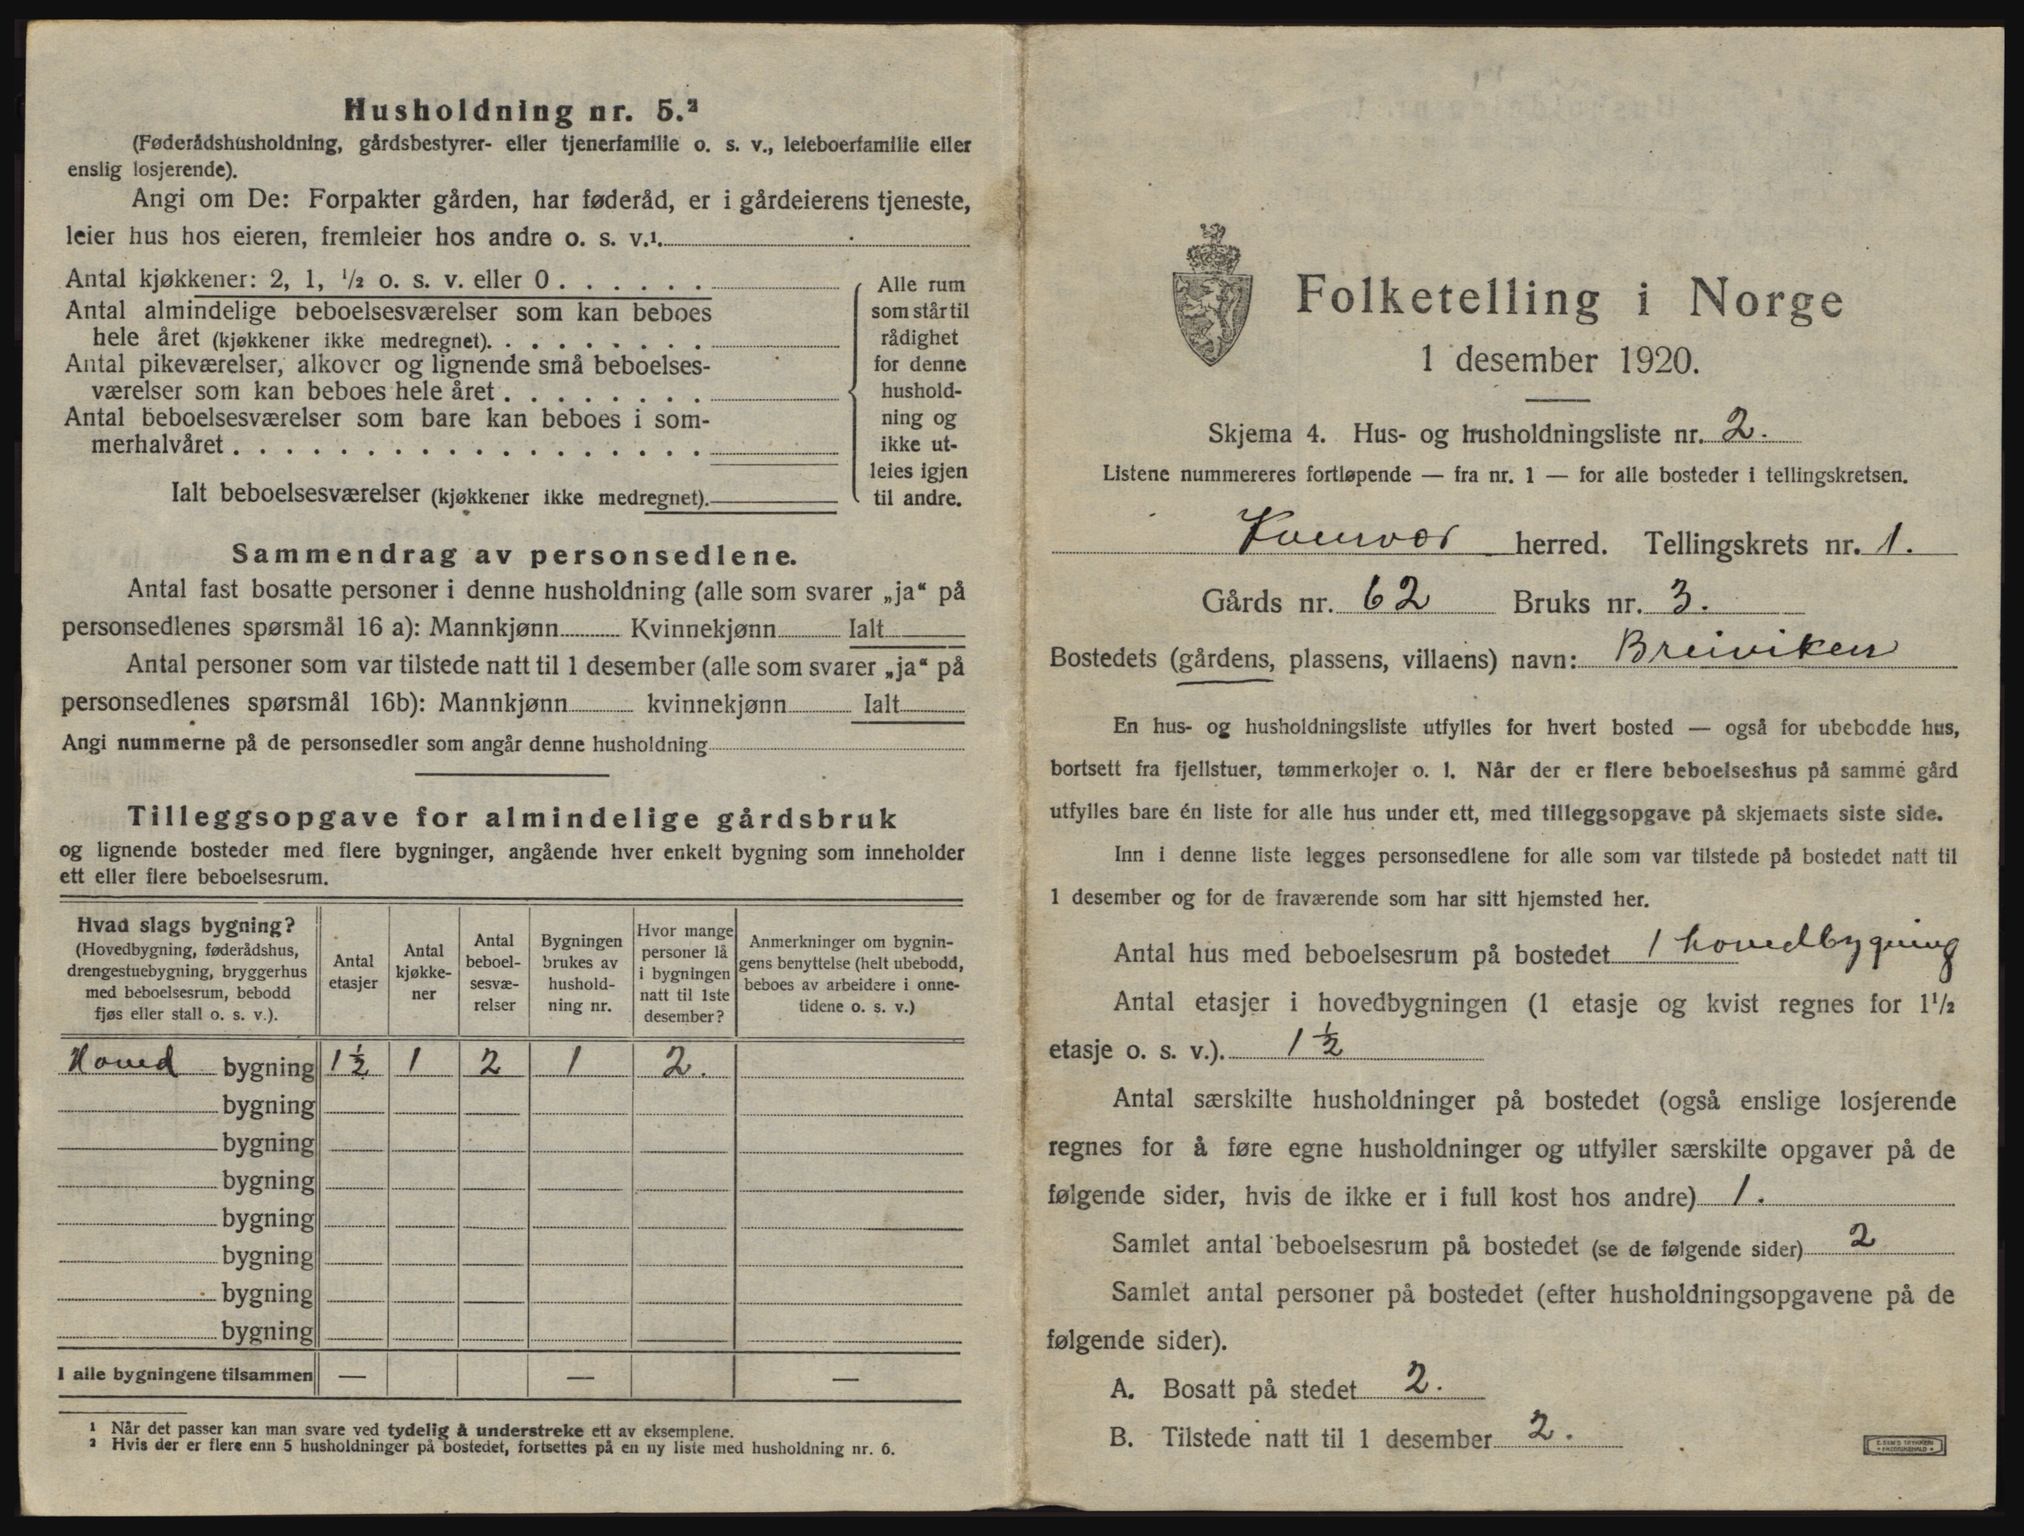 Husholdning nr. 5.²
(Føderådshusholdning, gårdsbestyrer- eller tjenerfamilie o. s. v., leieboerfamilie eller
enslig losjerende).
Angi om De: Forpakter gården, har føderåd, er i gårdeierens tjeneste,
leier hus hos eieren, fremleier hos andre o. s. v.¹
Antal kjøkkener: 2, 1, ½ o. s. v. eller 0
Antal almindelige beboelsesværelser som kan beboes
hele året (kjøkkener ikke medregnet)
Antal pikeværelser, alkover og lignende små beboelses-
værelser som kan beboes hele året
Antal beboelsesværelser som bare kan beboes i som-
merhalvåret
Ialt beboelsesværelser (kjøkkener ikke medregnet)
Alle rum
som står til
rådighet
for denne
hushold-
ning og
ikke ut-
leies igjen
til andre.
Sammendrag av personsedlene.
Antal fast bosatte personer i denne husholdning (alle som svarer „ja“ på
personsedlenes spørsmål 16 a): Mannkjønn Kvinnekjønn Ialt
Antal personer som var tilstede natt til 1 desember (alle som svarer „ja“ på
personsedlenes spørsmål 16b): Mannkjønn kvinnekjønn Ialt
Angi nummerne på de personsedler som angår denne husholdning
Tilleggsopgave for almindelige gårdsbruk
og lignende bosteder med flere bygninger, angående hver enkelt bygning som inneholder
ett eller flere beboelsesrum.
Hvad slags bygning?
(Hovedbygning, føderådshus,
drengestuebygning, bryggerhus
med beboelsesrum, bebodd
fjøs eller stall o. s. v.).
Antal
etasjer
Antal
kjøkke-
ner
Antal
beboel-
sesvæ-
relser
Bygningen
brukes av
hushold-
ning nr.
Hvor mange
personer lå
i bygningen
natt til 1ste
desember?
Anmerkninger om bygnin-
gens benyttelse (helt ubebodd,
beboes av arbeidere i onne-
tidene o. s. v.)
Hoved bygning 1½ 1 2 1 2.
bygning
bygning
bygning
bygning
bygning
bygning
bygning
I alle bygningene tilsammen — — —
¹ Når det passer kan man svare ved tydelig å understreke ett av eksemplene.
² Hvis der er flere enn 5 husholdninger på bostedet, fortsettes på en ny liste med husholdning nr. 6.
Folketelling i Norge
1 desember 1920.
Skjema 4. Hus- og husholdningsliste nr. 2.
Listene nummereres fortløpende — fra nr. 1 — for alle bosteder i tellingskretsen.
Kvenvær herred. Tellingskrets nr. 1.
Gårds nr. 62 Bruks nr. 3.
Bostedets (gårdens, plassens, villaens) navn: Breiviken
En hus- og husholdningsliste utfylles for hvert bosted — også for ubebodde hus,
bortsett fra fjellstuer, tømmerkojer o. l. Når der er flere beboelseshus på samme gård
utfylles bare én liste for alle hus under ett, med tilleggsopgave på skjemaets siste side.
Inn i denne liste legges personsedlene for alle som var tilstede på bostedet natt til
1 desember og for de fraværende som har sitt hjemsted her.
Antal hus med beboelsesrum på bostedet 1 hovedbygning
Antal etasjer i hovedbygningen (1 etasje og kvist regnes for 1½
etasje o. s. v.). 1½
Antal særskilte husholdninger på bostedet (også enslige losjerende
regnes for å føre egne husholdninger og utfyller særskilte opgaver på de
følgende sider, hvis de ikke er i full kost hos andre) 1.
Samlet antal beboelsesrum på bostedet (se de følgende sider) 2
Samlet antal personer på bostedet (efter husholdningsopgavene på de
følgende sider).
A. Bosatt på stedet 2.
B. Tilstede natt til 1 desember 2.